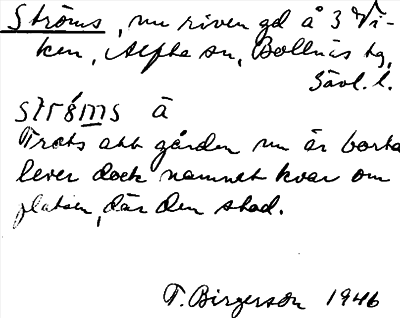 Ströms, nu riven gd å 3 Vi-
ken, Alfta sn, Bollnäs tg,
Gävl. l.
strǿms å
Trots att gården nu är borta
lever dock namnet kvar om
platsen, där den stod.
T. Birgerson 1946